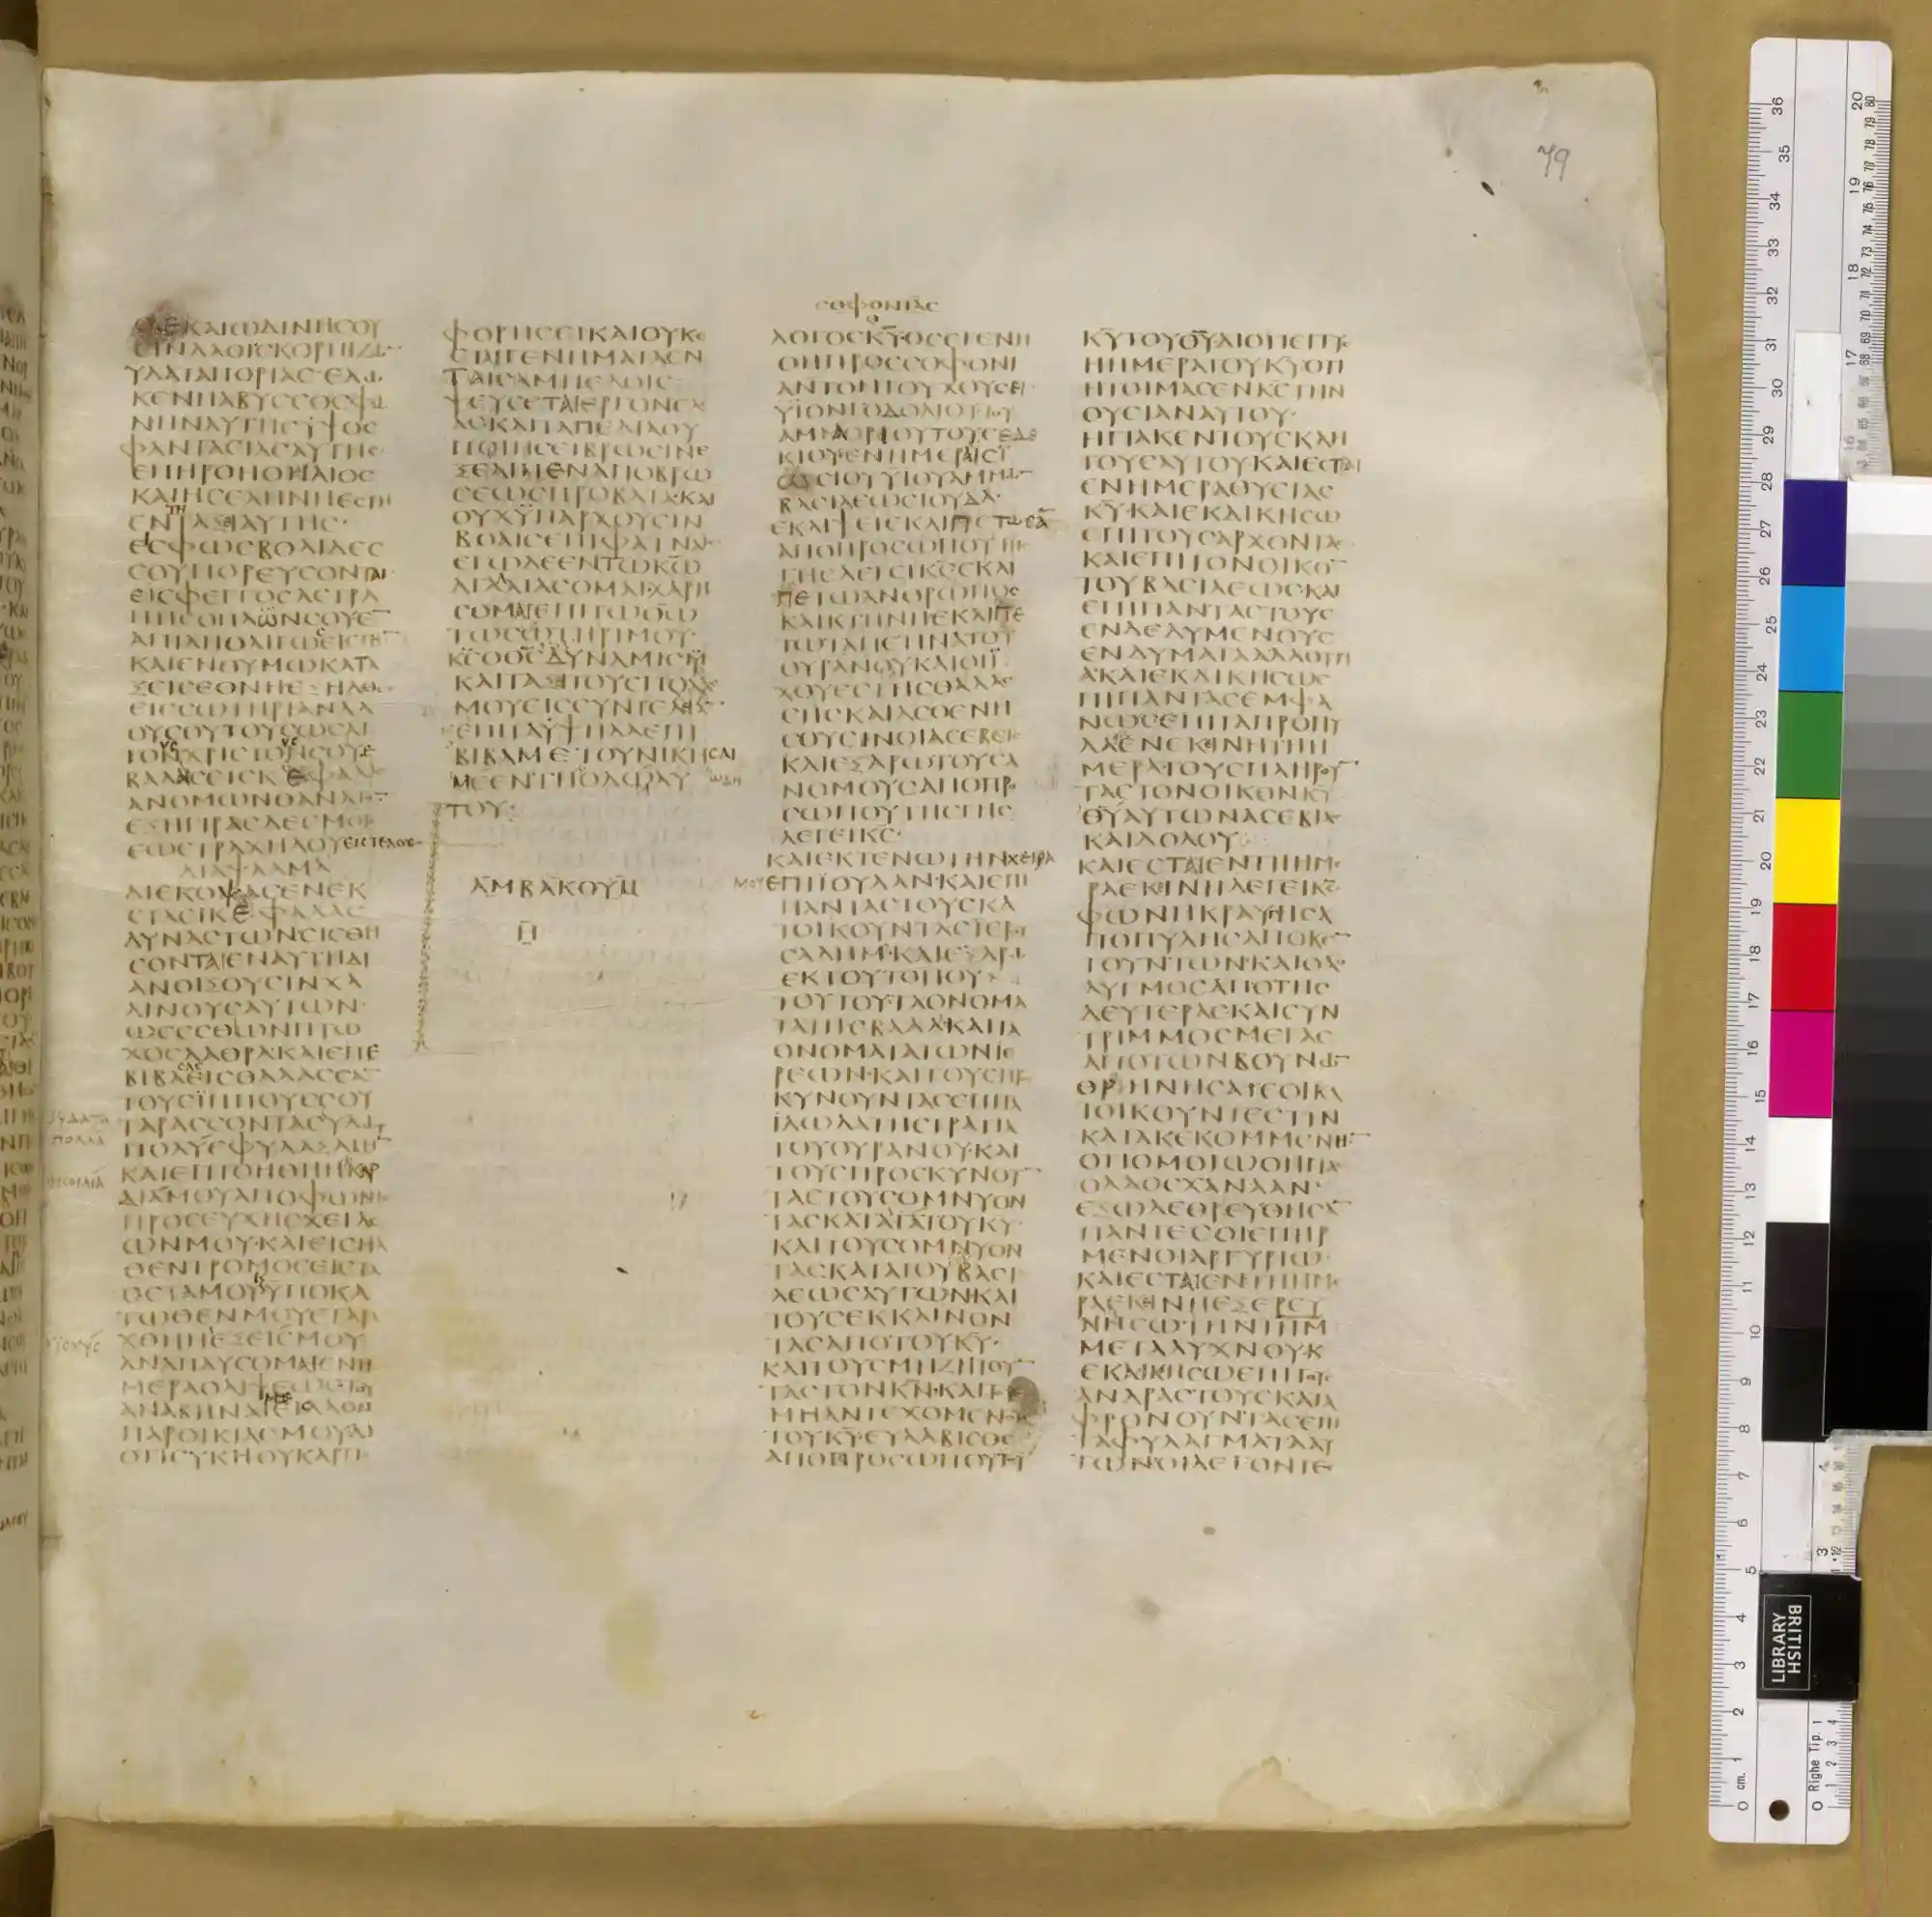 ϹЄΚΑΙΩΔΙΝΗϹΟΥ
ϹΙΝΛΑΟΙϹΚΟΡΠΙΖΩ̅
ΥΔΑΤΑΠΟΡΙΑϹ·ЄΔΩ
ΚЄΝΗΑΒΥϹϹΟϹΦΩ
ΝΗΝΑΥΤΗϹΥΨΟϹ
ΦΑΝΤΑϹΙΑϹΑΥΤΗϹ·
ЄΠΗΡΘΗΟΗΛΙΟϹ
ΚΑΙΗϹЄΛΗΝΗЄϹΤΗ
ЄΝΤΗΤΑΞΙΑΥΤΗϹ·
ЄΙϹΦΩϹΒΟΛΙΔЄϹ
ϹΟΥΠΟΡЄΥϹΟΝΤΑΙ
ЄΙϹΦЄΓΓΟϹΑϹΤΡΑ
ΠΗϹΟΠΛΩ̈ΝϹΟΥЄ̅
ΑΠΙΛΗΟΛΙΓΩϹЄΙϹΓΗ̅
ΚΑΙЄΝΘΥΜΩΚΑΤΑ
ΞЄΙϹЄΘΝΗЄΞΗΛΘЄϹ
ЄΙϹϹΩΤΗΡΙΑΝΛΑ
ΟΥϹΟΥΤΟΥϹΩϹΑΙ
ΤΟΥϹΧΡΙϹΤΟΥϹϹΟΥЄ
ΒΑΛΛЄϹЄΙϹΚЄΦΑΛΑϹ
ΑΝΟΜΩΝΘΑΝΑΤΟ̅
ЄΞΗΓΙΡΑϹΔЄϹΜΟΥϹ
ЄΩϹΤΡΑΧΗΛΟΥЄΙϹΤЄΛΟϹ
ΔΙΑΨΑΛΜΑ
ΔΙЄΚΟΨΑϹЄΝЄΚ
ϹΤΑϹΙΚЄΦΑΛΑϹ
ΔΥΝΑϹΤΩΝϹΙϹΘΗ
ϹΟΝΤΑΙЄΝΑΥΤΗΔΙ
ΑΝΟΙΞΟΥϹΙΝΧΑ
ΛΙΝΟΥϹΑΥΤΩΝ·
ΩϹЄϹΘΙΩΝΠΤΩ
ΧΟϹΛΑΘΡΑΚΑΙЄΠЄ
ΒΙΒΑϹΑϹЄΙϹΘΑΛΑϹϹΑ̅
ΤΟΥϹΪΠΠΟΥϹϹΟΥ
ΤΑΡΑϹϹΟΝΤΑϹΥΔΩΡ
ΠΟΛΥЄΦΥΛΑΞΑΜΗ̅
ΚΑΙЄΠΤΟΗΘΗΗΚΑΡ
ΔΙΑΜΟΥΑΠΟΦΩΝΗϹ
ΠΡΟϹЄΥΧΗϹΧЄΙΛЄ
ΩΝΜΟΥ·ΚΑΙЄΙϹΗΛ
ΘЄΝΤΡΟΜΟϹЄΙϹΤΑ
ΟϹΤΑΜΟΥΫΠΟΚΑ
ΤΩΘЄΝΜΟΥЄΤΑΡΑ
ΧΘΗΗЄΞЄΙϹΜΟΥ
ΑΝΑΠΑΥϹΟΜΑΙЄΝΗ
ΜЄΡΑΘΛΙΨЄΩϹΤΟΥ
ΑΝΑΒΗΝΑΙΜЄЄΙϹΛΑΟΝ
ΠΑΡΟΙΚΙΑϹΜΟΥΔΙ
ΟΤΙϹΥΚΗΟΥΚΑΡΠΟ
ΦΟΡΗϹЄΙΚΑΙΟΥΚЄ
ϹΤΑΙΓЄΝΗΜΑΤΑЄΝ
ΤΑΙϹΑΜΠЄΛΟΙϹ
ΨЄΥϹЄΤΑΙЄΡΓΟΝЄΛ
ΑΙΑϹΚΑΙΤΑΠЄΔΙΑΟΥ
ΠΟΙΗϹЄΙΒΡΩϹΙΝЄ
ΞЄΛΙΠЄΝΑΠΟΒΡΩ
ϹЄΩϹΠΡΟΒΑΤΑ·ΚΑΙ
ΟΥΧΫΠΑΡΧΟΥϹΙΝ
ΒΟΑΙϹЄΠΙΦΑΤΝΑΙϹ
ЄΓΩΔЄЄΝΤΩΚ̅Ω̅
ΑΓΑΛΛΙΑϹΟΜΑΙ·ΧΑΡΗ
ϹΟΜΑΙЄΠΙΤΩΘ̅Ω̅
ΤΩϹΩΤΗΡΙΜΟΥ·
Κ̅Ϲ̅ΟΘ̅Ϲ̅ΔΥΝΑΜΙϹΜΟΥ
ΚΑΙΤΑΞЄΙΤΟΥϹΠΟΔΑϹ
ΜΟΥЄΙϹϹΥΝΤЄΛЄΙΑ̅
ЄΠΙΤΑΥΨΗΛΑЄΠΙ
ΒΙΒΑΜЄ·ΤΟΥΝΙΚΗϹΑΙ
ΜЄЄΝΤΗΩΔΗΑΥ
ΤΟΥ:
ΑΜΒΑΚΟΥΜ
Η̅
ϹΟΦΟΝΙΑϹ
ΛΟΓΟϹΚ̅Υ̅·ΟϹЄΓЄΝΗ
ΘΗΠΡΟϹϹΟΦΟΝΙ
ΑΝΤΟΝΤΟΥΧΟΥϹЄΙ
ΥΪΟΝΓΟΔΟΛΙΟΥΤΟΥ
ΑΜΑΡΙΟΥΤΟΥЄΖЄ
ΚΙΟΥ·ЄΝΗΜЄΡΑΙϹΪ
ΩϹΙΟΥΥΪΟΥΑΜΜΩ̅
ΒΑϹΙΛЄΩϹΙΟΥΔΑ·
ЄΚΛΙΨЄΙЄΚΛΙΠЄΤΩϹΑ̅
ΑΠΟΠΡΟϹΩΠΟΥΤΗϹ
ΓΗϹΛЄΓЄΙΚ̅Ϲ̅ЄΚΛΙ
ΠЄΤΩΑΝΘΡΩΠΟϹ
ΚΑΙΚΤΗΝΗЄΚΛΙΠЄ
ΤΩΤΑΠЄΤΙΝΑΤΟΥ
ΟΥΡΑΝΟΥΚΑΙΟΙΪ
ΧΘΥЄϹΤΗϹΘΑΛΑϹ
ϹΗϹΚΑΙΑϹΘЄΝΗ
ϹΟΥϹΙΝΟΙΑϹЄΒЄΙϹ
ΚΑΙЄΞΑΡΩΤΟΥϹΑ
ΝΟΜΟΥϹΑΠΟΠΡΟ
ϹΩΠΟΥΤΗϹΓΗϹ
ΛЄΓЄΙΚ̅Ϲ̅·
ΚΑΙЄΚΤЄΝΩΤΗΝΧЄΙΡΑ
ΜΟΥЄΠΙΪΟΥΔΑΝ·ΚΑΙЄΠΙ
ΠΑΝΤΑϹΤΟΥϹΚΑ
ΤΟΙΚΟΥΝΤΑϹΪЄΡΟΥ
ϹΑΛΗΜ·ΚΑΙЄΞΑΡΩ
ЄΚΤΟΥΤΟΠΟΥ
ΤΟΥΤΟΥΤΑΟΝΟΜΑ
ΤΑΤΗϹΒΑΑΛ·ΚΑΙΤΑ
ΟΝΟΜΑΤΑΤΩΝΙЄ
ΡЄΩΝ·ΚΑΙΤΟΥϹΠΡΟϹ
ΚΥΝΟΥΝΤΑϹЄΠΙΤΑ
ΔΩΜΑΤΑΤΗϹΤΡΑΤΙΑ
ΤΟΥΟΥΡΑΝΟΥ·ΚΑΙ
ΤΟΥϹΠΡΟϹΚΥΝΟΥ̅
ΤΑϹΤΟΥϹΟΜΝΥΟΝ
ΤΑϹΚΑΤΑΤΟΥΚ̅Υ̅
ΚΑΙΤΟΥϹΟΜΝΥΟΝ
ΤΑϹ·ΚΑΤΑΤΟΥΒΑϹΙ
ΛЄΩϹΑΥΤΩΝ·ΚΑΙ
ΤΟΥϹЄΚΚΛΙΝΟΝ
ΤΑϹΑΠΟΤΟΥΚ̅Υ̅·
ΚΑΙΤΟΥϹΜΗΖΗΤΟΥ̅
ΤΑϹΤΟΝΚ̅Ν̅·ΚΑΙΤΟΥϹ
ΜΗΑΝΤЄΧΟΜЄΝΟΥϹ
ΤΟΥΚ̅Υ̅·ЄΥΛΑΒΙϹΘЄ
ΑΠΟΠΡΟϹΩΠΟΥ
Κ̅Υ̅ΤΟΥΘ̅Υ̅ΔΙΟΤΙЄΓΓΥϹ
ΗΗΜЄΡΑΤΟΥΚ̅Υ̅ΟΤΙ
ΗΤΟΙΜΑϹЄΝΚ̅Ϲ̅ΤΗΝ
ΘΥϹΙΑΝΑΥΤΟΥ·
ΗΓΙΑΚЄΝΤΟΥϹΚΛΗ
ΤΟΥϹΑΥΤΟΥΚΑΙЄϹΤΑΙ
ЄΝΗΜЄΡΑΘΥϹΙΑϹ
Κ̅Υ̅·ΚΑΙЄΚΔΙΚΗϹΩ
ЄΠΙΤΟΥϹΑΡΧΟΝΤΑϹ
ΚΑΙЄΠΙΤΟΝΟΙΚΟ̅
ΤΟΥΒΑϹΙΛЄΩϹ·ΚΑΙ
ЄΠΙΠΑΝΤΑϹΤΟΥϹ
ЄΝΔЄΔΥΜЄΝΟΥϹ
ЄΝΔΥΜΑΤΑΑΛΛΟΤΡΙ
Α·ΚΑΙЄΚΔΙΚΗϹΩЄ
ΠΙΠΑΝΤΑϹЄΜΦΑ
ΝΩϹЄΠΙΤΑΠΡΟΠΥ
ΛΑЄΝЄΚΙΝΗΤΗΗ
ΜЄΡΑΤΟΥϹΠΛΗΡΟΥ̅
ΤΑϹΤΟΝΟΙΚΟΝΚ̅Υ̅
Θ̅Υ̅ΑΥΤΩΝΑϹЄΒΙΑϹ
ΚΑΙΔΟΛΟΥ
ΚΑΙЄϹΤΑΙЄΝΤΗΗΜЄ
ΡΑЄΚΙΝΗΛЄΓЄΙΚ̅Ϲ̅
ΦΩΝΗΚΡΑΥΓΗϹΑ
ΠΟΠΥΛΗϹΑΠΟΚЄ̅
ΤΟΥΝΤΩΝ·ΚΑΙΟΛΟ
ΛΥΓΜΟϹΑΠΟΤΗϹ
ΔЄΥΤЄΡΑϹ·ΚΑΙϹΥΝ
ΤΡΙΜΜΟϹΜЄΓΑϹ
ΑΠΟΤΩΝΒΟΥΝΩ̅
ΘΡΗΝΗϹΑΤЄΟΙΚΑ
ΤΟΙΚΟΥΝΤЄϹΤΗΝ
ΚΑΤΑΚЄΚΟΜΜЄΝΗ̅
ΟΤΙΟΜΟΙΩΘΗΠΑϹ
ΟΛΑΟϹΧΑΝΑΑΝ·
ЄΞΩΛЄΘΡЄΥΘΗϹΑ̅
ΠΑΝΤЄϹΟΙЄΠΗΡ
ΜЄΝΟΙΑΡΓΥΡΙΩ·
ΚΑΙЄϹΤΑΙЄΝΤΗΗΜЄ
ΡΑЄΚΙΝΗЄΞЄΡЄΥ
ΝΗϹΩΤΗΝΙΗΜ
ΜЄΤΑΛΥΧΝΟΥ·Κ
ЄΚΔΙΚΗϹΩЄΠΙΤΟΥϹ
ΑΝΔΡΑϹΤΟΥϹΚΑΤΑ
ΦΡΟΝΟΥΝΤΑϹЄΠΙ
ΤΑΦΥΛΑΓΜΑΤΑΑΥ
ΤΩΝΟΙΛЄΓΟΝΤЄϹ
79
BRITISH
LIBRARY